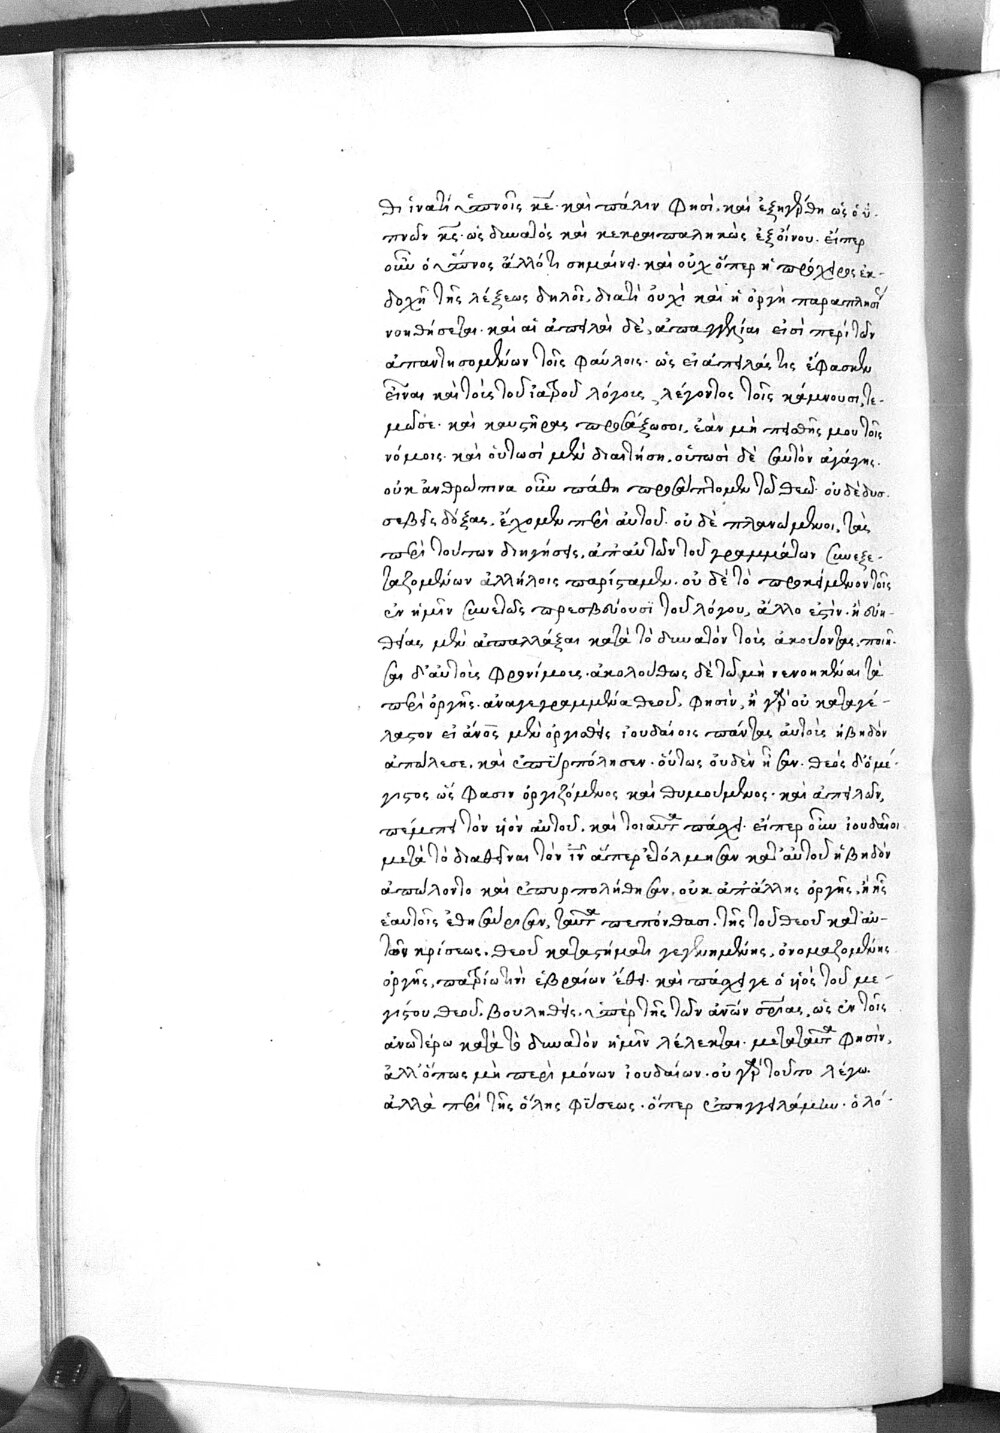 θι ἱνατί ὑπνοῖς κε̅· καὶ πάλιν φησὶ, καὶ ἐξηγέρθη ὡς ὁ ὑ-
πνῶν κς̅· ὡς δυνατὸς καὶ κεκραιπαληκὼς ἐξ οἴνου. εἴπερ
οὖν ὁ ὕπνος ἄλλό τι σημαίνει· καὶ οὐχ ὅπερ ἡ πρόχειρος ἐκ-
δοχὴ τῆς λέξεως δηλοῖ, διατὶ οὐχὶ καὶ ἡ ὀργὴ παραπλησί
νοηθήσεται· καὶ αἱ ἀπειλαὶ δὲ, ἀπαγγελίαι εἰσὶ περὶ τῶν
ἀπαντησομένων τοῖς φαύλοις· ὡς εἰ ἀπειλάς τις ἔφασκεν
εἶναι καὶ τοὺς τοῦ ἰατροῦ λόγους λέγοντος τοῖς κάμνουσι, τε-
μῶ σε· καὶ καυτῆρας προσάξω σοι, ἐὰν μὴ πεισθῇς μου τοῖς
νόμοις· καὶ οὑτωσὶ μὲν διαιτήσῃ, οὑτωσὶ δὲ σαυτὸν ἀγάγῃς.
οὐκ ἀνθρώπινα οὖν πάθη προσάπτομεν τῶ θεῶ· οὐδὲ δυσ-
σεβεῖς δόξας, ἔχομεν περὶ αὐτοῦ. οὐδὲ πλανώμενοι, τὰς
περὶ τούτων διηγήσεις, ἀπ αὐτῶν τοῦ γραμμάτων συνεξε-
ταζομένων ἀλλήλοις παρίσταμεν. οὐδὲ τὸ προκείμενον τοῖς
ἐν ἡμῖν συνετῶς πρεσβεύουσι τοῦ λόγου, ἄλλο ἐστὶν· ἢ εὐη-
θείας μὲν ἀπαλλάξαι κατὰ τὸ δυνατὸν τοὺς ἀκούοντας, ποιῆ-
σαι δ' αὐτοὺς φρονίμους· ἀκολούθως δὲ τῶ μὴ νενοηκέναι τὰ
περὶ ὀργῆς· ἀναγεγραμμένα θεοῦ, φησὶν, ἢ γὰρ οὐ καταγέ-
λαστον εἰ ἄνο̅ς μὲν ὀργισθεὶς ἰουδαίοις πάντας αὐτοὺς ἡβηδὸν
ἀπώλεσε, καὶ ἐπυρπόλησεν· οὕτως οὐδὲν ἦσαν· θεὸς δ' ὁ μέ-
γιστος ὥς φασιν ὀργιζόμενος καὶ θυμούμενος· καὶ ἀπειλῶν,
πέμπει τὸν υἱὸν αὐτοῦ, καὶ τοιαῦτα πάσχει· εἴπερ οὖν ἰουδαῖοι
μετὰ τὸ διαθεῖναι τὸν ἰν̅ ἅπερ ἐτόλμησαν κατ' αὐτοῦ ἡβηδὸν
ἀπώλοντο καὶ ἐπυρπολήθησαν, οὐκ ἀπ ἄλλης ὀργῆς, ἢ ἧς
ἑαυτοῖς ἐθησαύρισαν, ταῦτα πεπόνθασι· τῆς τοῦ θεοῦ κατ' αὐ-
τῶν κρίσεως. θεοῦ καταστήματι γεγενημένης, ὀνομαζομένης
ὀργῆς, πατρίω τινὶ ἑβραίων ἔθει· καὶ πάσχει γε ὁ υἱὸς τοῦ με-
γίστου θεοῦ. βουληθεὶς· ὑπὲρ τῆς τῶν ἀνω̅ν σρίας, ὡς ἐν τοῖς
ἀνωτέρω κατὰ τὸ δυνατὸν ἡμῖν λέλεκται· μετὰ ταῦτα φησὶν,
ἀλλ' ὅπως μὴ περὶ μόνων ἰουδαίων· οὐ γὰρ τοῦτο λέγω·
ἀλλὰ περὶ τῆς ὅλης φύσεως· ὅπερ ἐπηγγειλάμην· ὁ λό-